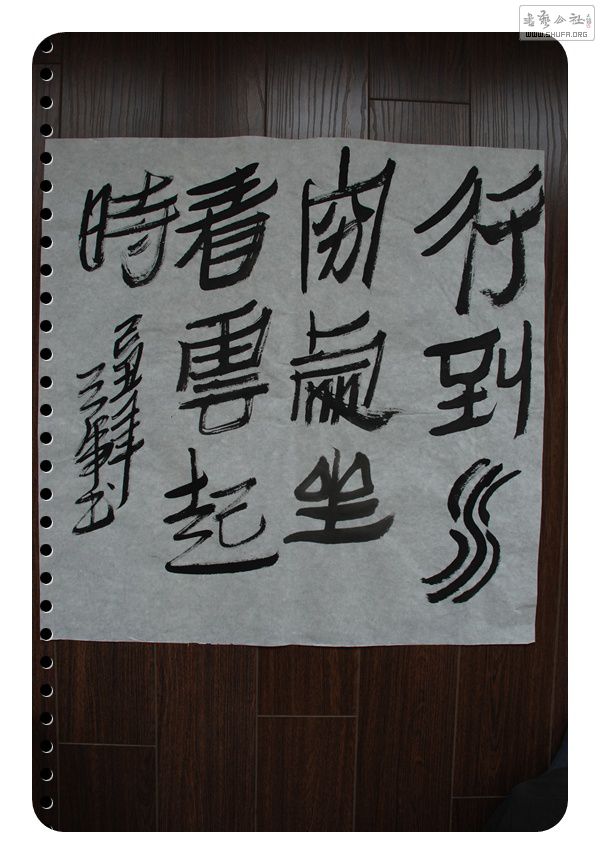 行到水
穷處坐
看雲起
時
己丑
书
書藝公社
WWW.SHUFA.ORG